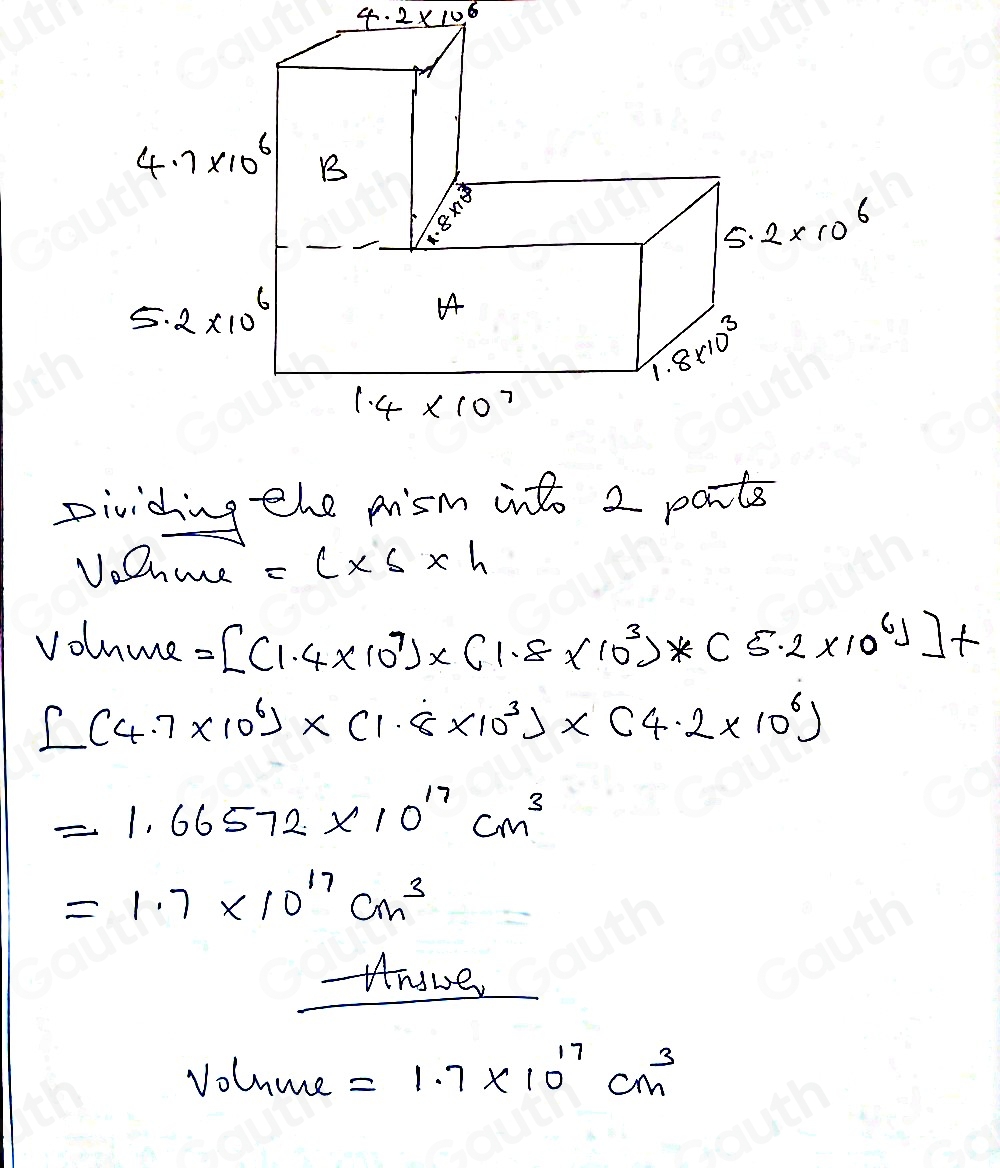 4.2×10⁶
4.7×10⁶
B
1.8×10³
5.2×10⁶
5.2×10⁶
A
1.8×10³
1.4×10⁷
Dividing the prism into 2 parts
Volume = l×b×h
Volume = [(1.4×10⁷)×(1.8×10³)*(5.2×10⁶)]+
[(4.7×10⁶)×(1.8×10³)×(4.2×10⁶)
= 1.66572×10¹⁷ cm³
= 1.7×10¹⁷ cm³
Answer
Volume = 1.7×10¹⁷ cm³